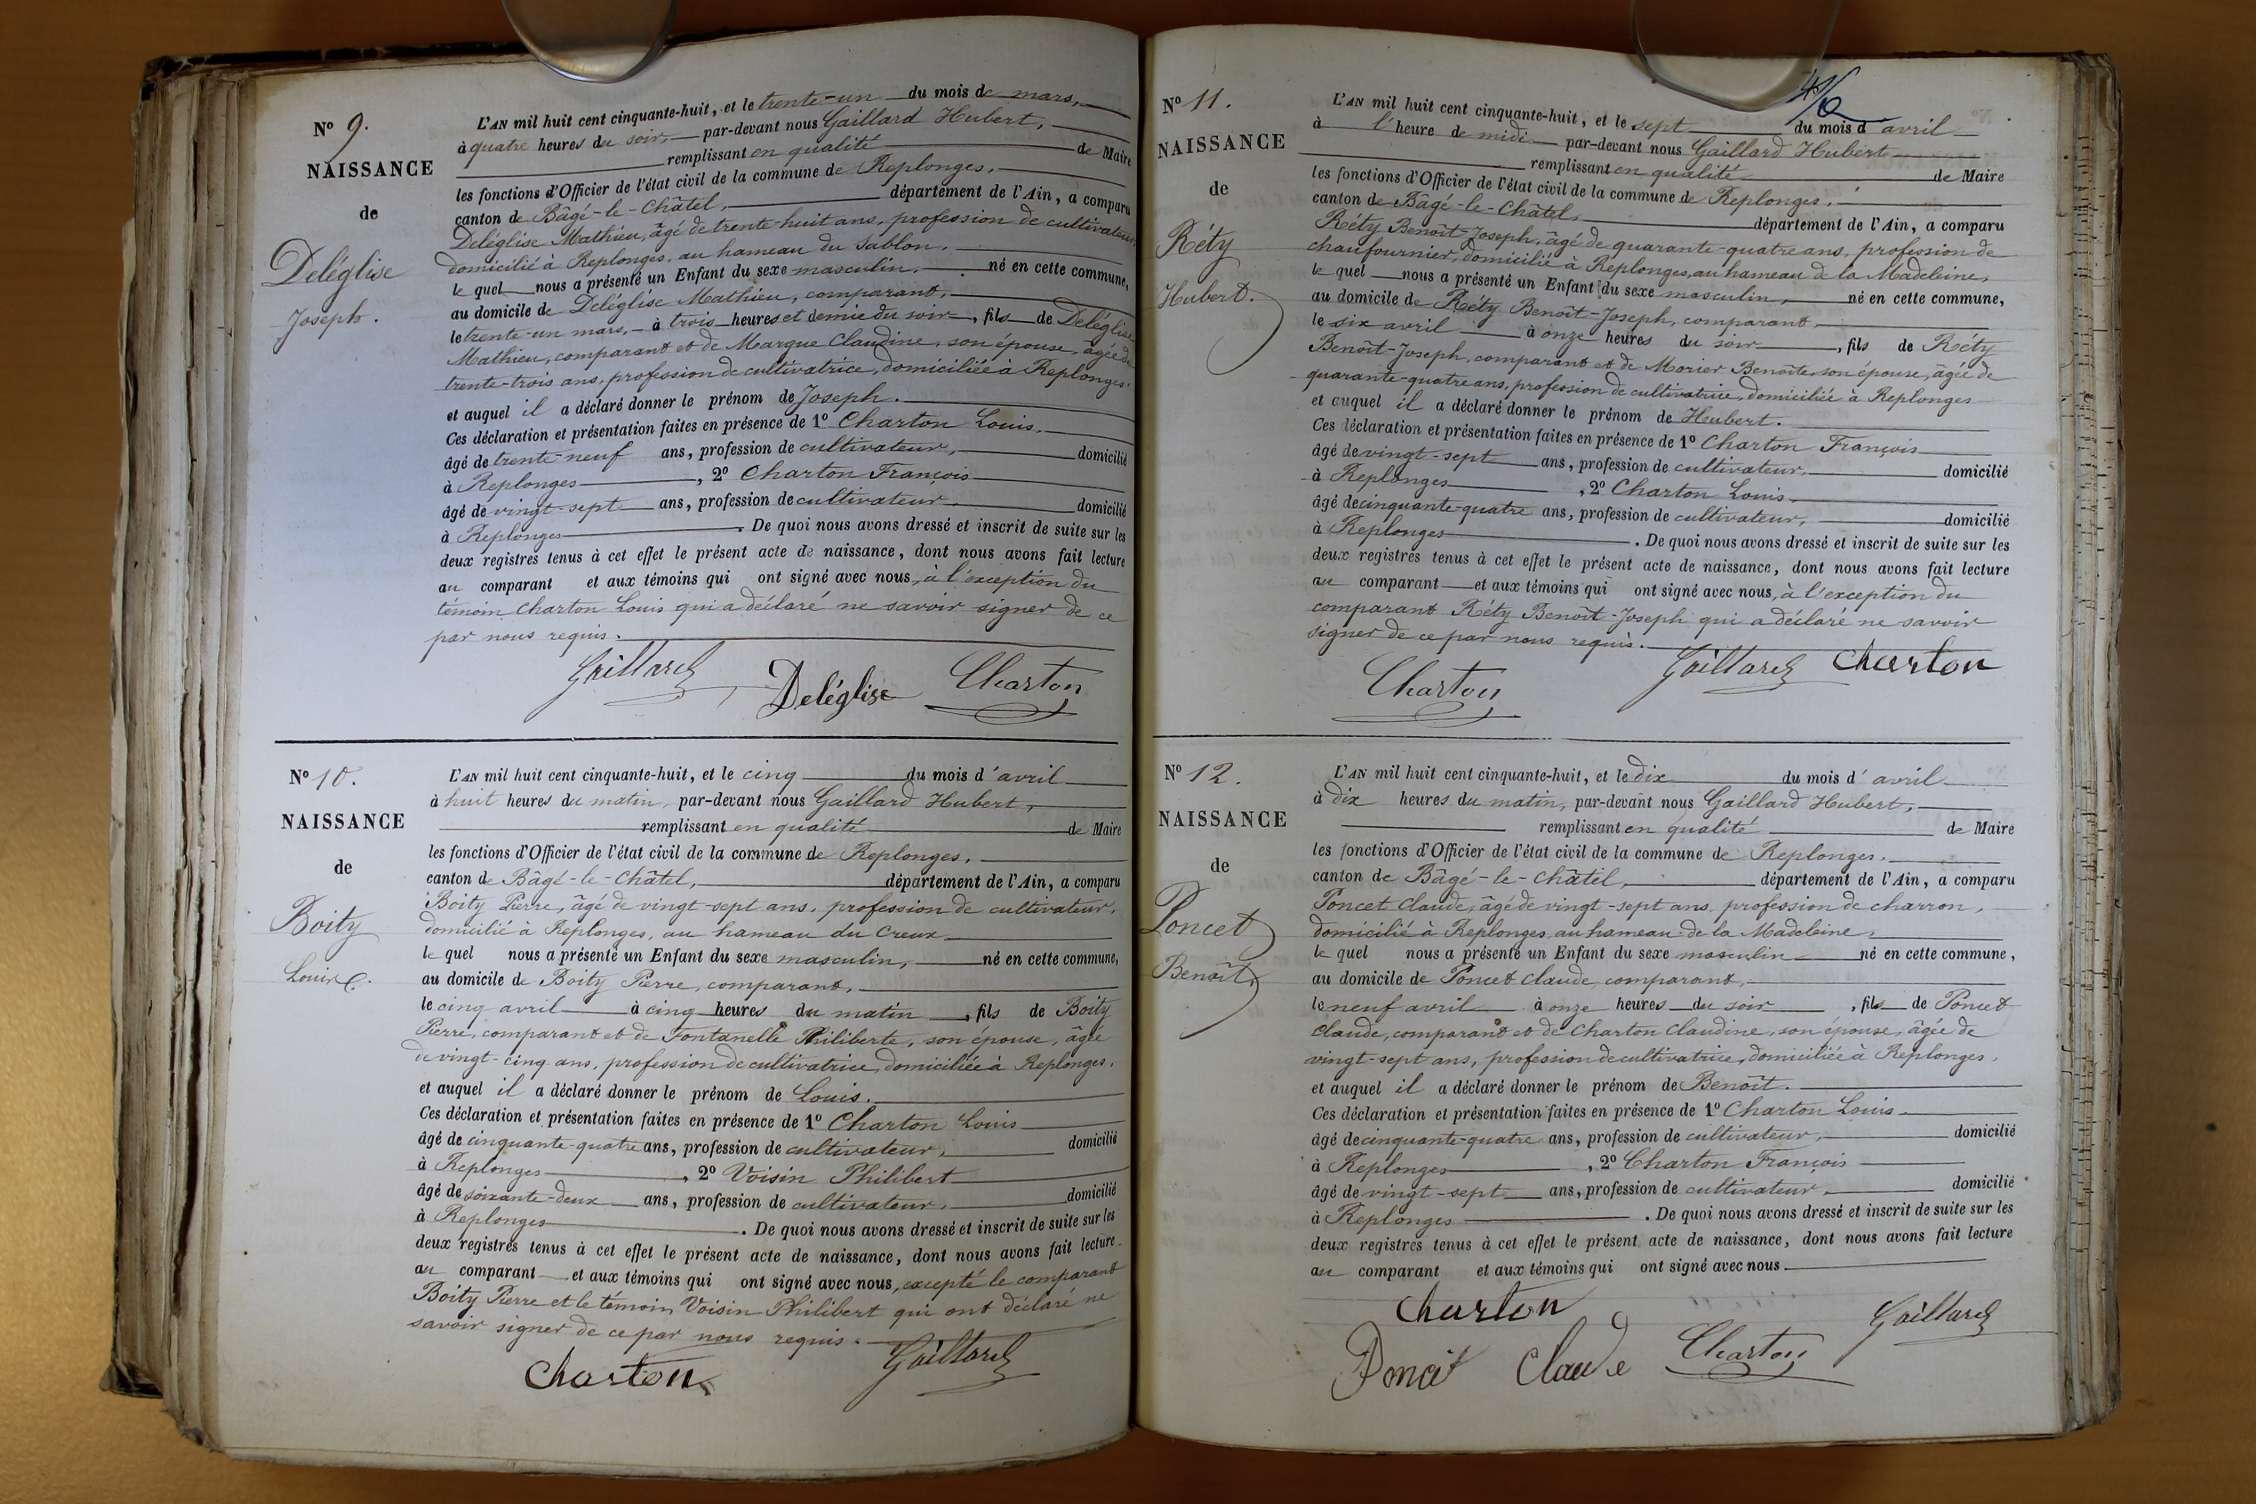 Nº 9.
NAISSANCE
de
Deléglise
Joseph.
L'AN mil huit cent cinquante-huit, et le trente-un du mois de mars,
à quatre heures du soir, par-devant nous Gaillard Hubert,
remplissant en qualité de Maire
les fonctions d'Officier de l'état civil de la commune de Replonges,
canton de Bâgé-le-Châtel, département de l'Ain, a comparu
Deléglise Mathieu, âgé de trente-huit ans, profession de cultivateur,
domicilié à Replonges, au hameau du Sablon,
le quel nous a présenté un Enfant du sexe masculin, né en cette commune,
au domicile de Deléglise Mathieu, comparant,
le trente-un mars, à trois heures et demie du soir, fils de Deléglise
Mathieu, comparant et de Marque Claudine, son épouse, âgée de
trente-trois ans, profession de cultivatrice, domiciliée à Replonges,
et auquel il a déclaré donner le prénom de Joseph.
Ces déclaration et présentation faites en présence de 1º Charton Louis,
âgé de trente-neuf ans, profession de cultivateur, domicilié
à Replonges, 2º Charton François
âgé de vingt-sept ans, profession de cultivateur, domicilié
à Replonges. De quoi nous avons dressé et inscrit de suite sur les
deux registres tenus à cet effet le présent acte de naissance, dont nous avons fait lecture
au comparant et aux témoins qui ont signé avec nous, à l'exception du
témoin Charton Louis qui a déclaré ne savoir signer de ce
par nous requis.
Gaillard Deléglise Charton
Nº 10.
NAISSANCE
de
Boity
Louis.
L'AN mil huit cent cinquante-huit, et le cinq du mois d'avril
à huit heures du matin, par-devant nous Gaillard Hubert,
remplissant en qualité de Maire
les fonctions d'Officier de l'état civil de la commune de Replonges,
canton de Bâgé-le-Châtel, département de l'Ain, a comparu
Boity Pierre, âgé de vingt-sept ans, profession de cultivateur,
domicilié à Replonges, au hameau du Creux
le quel nous a présenté un Enfant du sexe masculin, né en cette commune,
au domicile de Boity Pierre, comparant,
le cinq avril à cinq heures du matin, fils de Boity
Pierre, comparant et de Fontanelle Philiberte, son épouse, âgée
de vingt-cinq ans, profession de cultivatrice, domiciliée à Replonges,
et auquel il a déclaré donner le prénom de Louis.
Ces déclaration et présentation faites en présence de 1º Charton Louis
âgé de cinquante-quatre ans, profession de cultivateur, domicilié
à Replonges, 2º Voisin Philibert
âgé de soixante-deux ans, profession de cultivateur, domicilié
à Replonges. De quoi nous avons dressé et inscrit de suite sur les
deux registres tenus à cet effet le présent acte de naissance, dont nous avons fait lecture
au comparant et aux témoins qui ont signé avec nous, excepté le comparant
Boity Pierre et le témoin Voisin Philibert qui ont déclaré ne
savoir signer de ce par nous requis.
Charton Gaillard
Nº 11.
NAISSANCE
de
Réty
Hubert.
L'AN mil huit cent cinquante-huit, et le sept du mois d'avril
à l'heure de midi par-devant nous Gaillard Hubert
remplissant en qualité de Maire
les fonctions d'Officier de l'état civil de la commune de Replonges,
canton de Bâgé-le-Châtel, département de l'Ain, a comparu
Réty Benoît-Joseph, âgé de quarante-quatre ans, profession de
chaufournier, domicilié à Replonges, au hameau de la Madeleine,
le quel nous a présenté un Enfant du sexe masculin, né en cette commune,
au domicile de Réty Benoît-Joseph, comparant,
le six avril à onze heures du soir, fils de Réty
Benoît-Joseph, comparant et de Morier Benoîte, son épouse, âgée de
quarante-quatre ans, profession de cultivatrice, domiciliée à Replonges
et auquel il a déclaré donner le prénom de Hubert.
Ces déclaration et présentation faites en présence de 1º Charton François
âgé de vingt-sept ans, profession de cultivateur, domicilié
à Replonges, 2º Charton Louis
âgé de cinquante-quatre ans, profession de cultivateur, domicilié
à Replonges. De quoi nous avons dressé et inscrit de suite sur les
deux registres tenus à cet effet le présent acte de naissance, dont nous avons fait lecture
au comparant et aux témoins qui ont signé avec nous, à l'exception du
comparant Réty Benoît-Joseph qui a déclaré ne savoir
signer de ce par nous requis.
Charton Gaillard Charton
Nº 12.
NAISSANCE
de
Poncet
Benoît
L'AN mil huit cent cinquante-huit, et le dix du mois d'avril
à dix heures du matin, par-devant nous Gaillard Hubert,
remplissant en qualité de Maire
les fonctions d'Officier de l'état civil de la commune de Replonges,
canton de Bâgé-le-Châtel, département de l'Ain, a comparu
Poncet Claude, âgé de vingt-sept ans, profession de charron,
domicilié à Replonges, au hameau de la Madeleine,
le quel nous a présenté un Enfant du sexe masculin né en cette commune,
au domicile de Poncet Claude, comparant,
le neuf avril à onze heures du soir, fils de Poncet
Claude, comparant et de Charton Claudine, son épouse, âgée de
vingt-sept ans, profession de cultivatrice, domiciliée à Replonges,
et auquel il a déclaré donner le prénom de Benoît.
Ces déclaration et présentation faites en présence de 1º Charton Louis
âgé de cinquante-quatre ans, profession de cultivateur, domicilié
à Replonges, 2º Charton François
âgé de vingt-sept ans, profession de cultivateur, domicilié
à Replonges. De quoi nous avons dressé et inscrit de suite sur les
deux registres tenus à cet effet le présent acte de naissance, dont nous avons fait lecture
au comparant et aux témoins qui ont signé avec nous
Charton Gaillard
Poncet Claude Charton